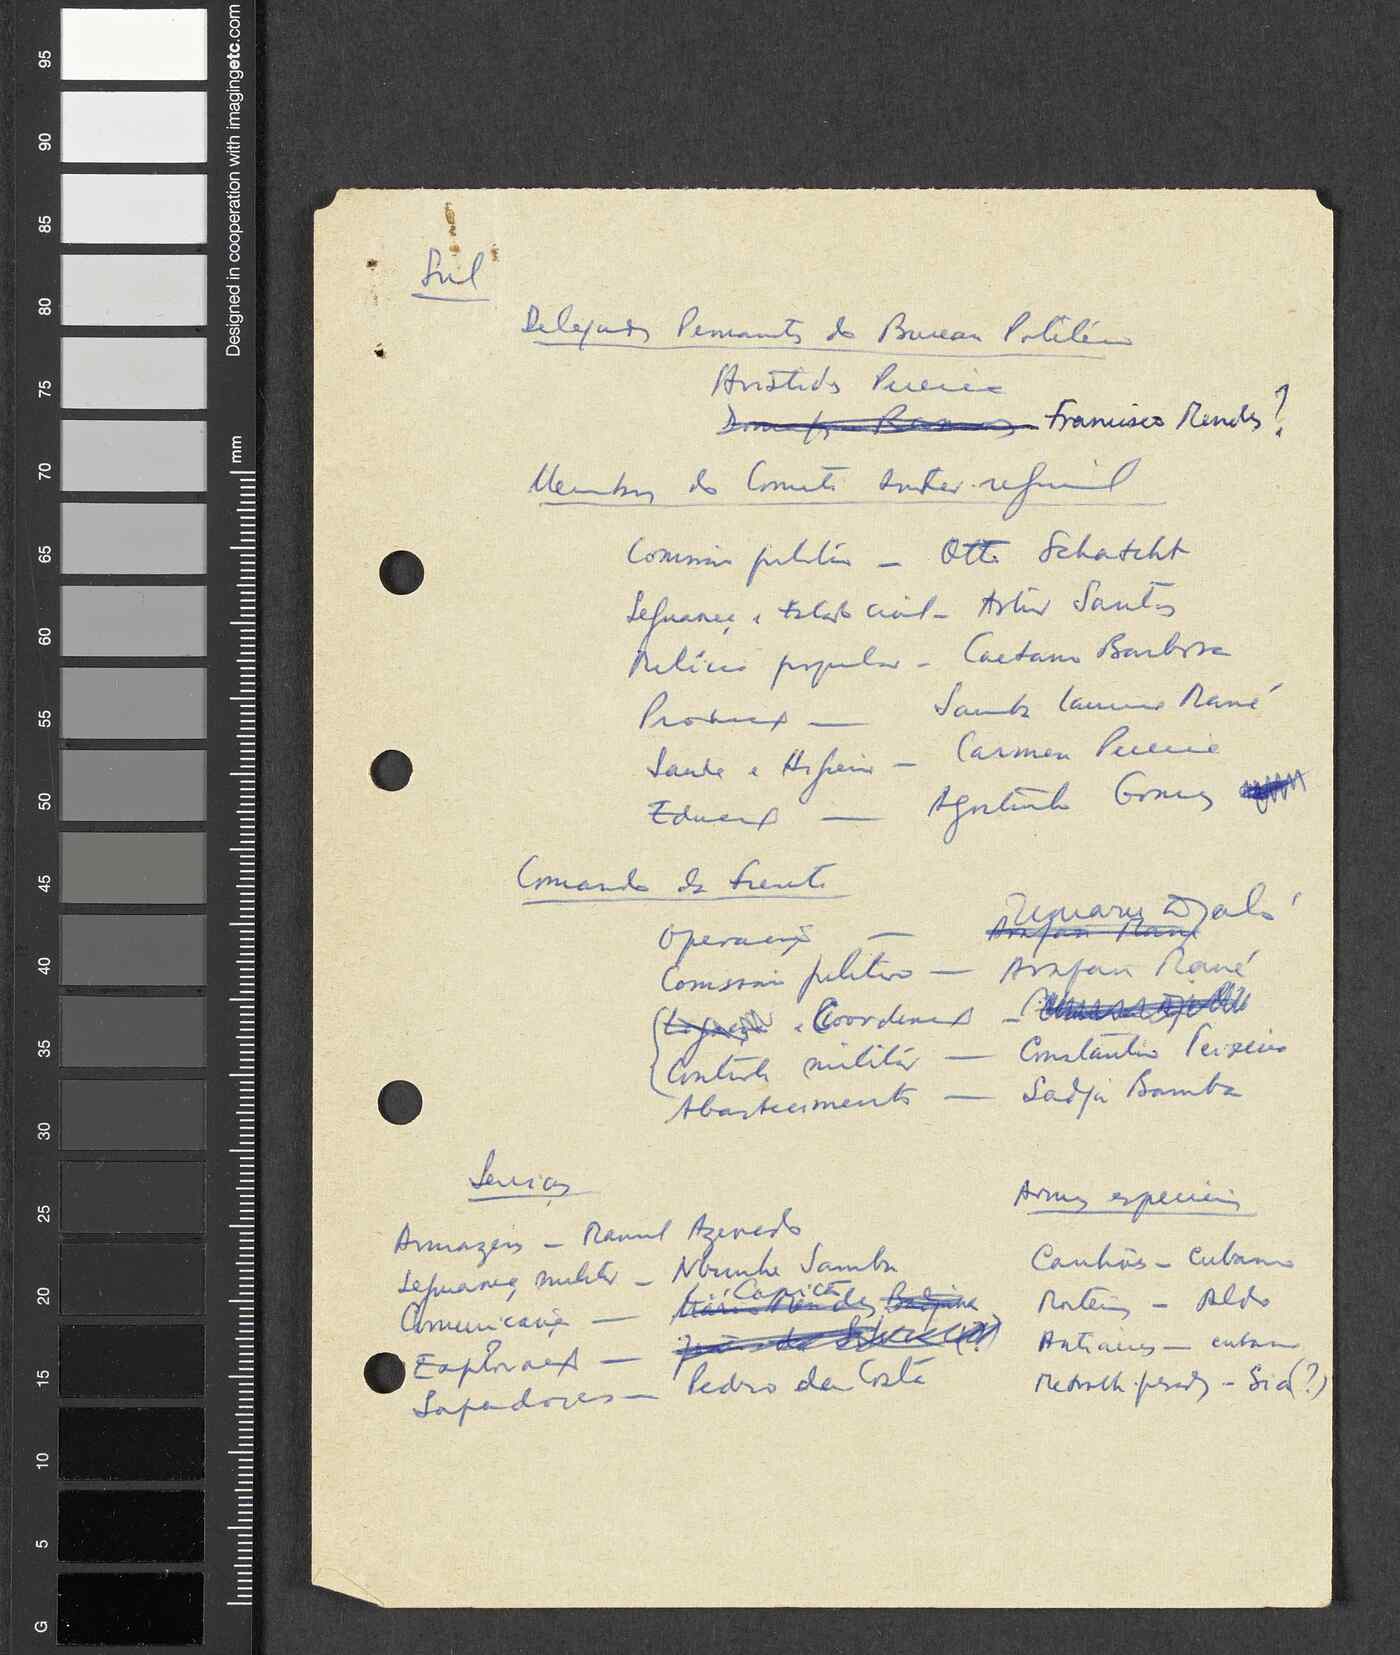 Sul
Delegados Permanentes do Bureau Político
Aristides Pereira
Domingos Ramos Francisco Mendes?
Membros do Comité inter-regional
Comissário político — Otto Schatcht
Segurança e Estado civil — Artur Santos
Milícia popular — Caetano Barbosa
Produção — Samba Lamine Mané
Saúde e Higiene — Carmen Pereira
Educação — Agostinho Gomes
Comando da frente
Operações — Umaru Djaló
Arafan Mané
Comissário político — Arafan Mané
Ligação e Coordenação —
Controle militar — Constantino Teixeira
Abastecimento — Sadjá Bamba
Serviços
Armazéns — Manuel Azevedo
Segurança militar — Samba
Comunicações —
Exploração —
Sapadores — Pedro da Costa
Armas especiais
Canhões — cubano
Morteiros — Aldo
Antiaéreas — cubano
Metralh. pesadas — Sid (?)
95
90
85
80
75
70
65
60
55
50
45
40
35
30
25
20
15
10
5
G
mm
Designed in cooperation with imagingetc.com